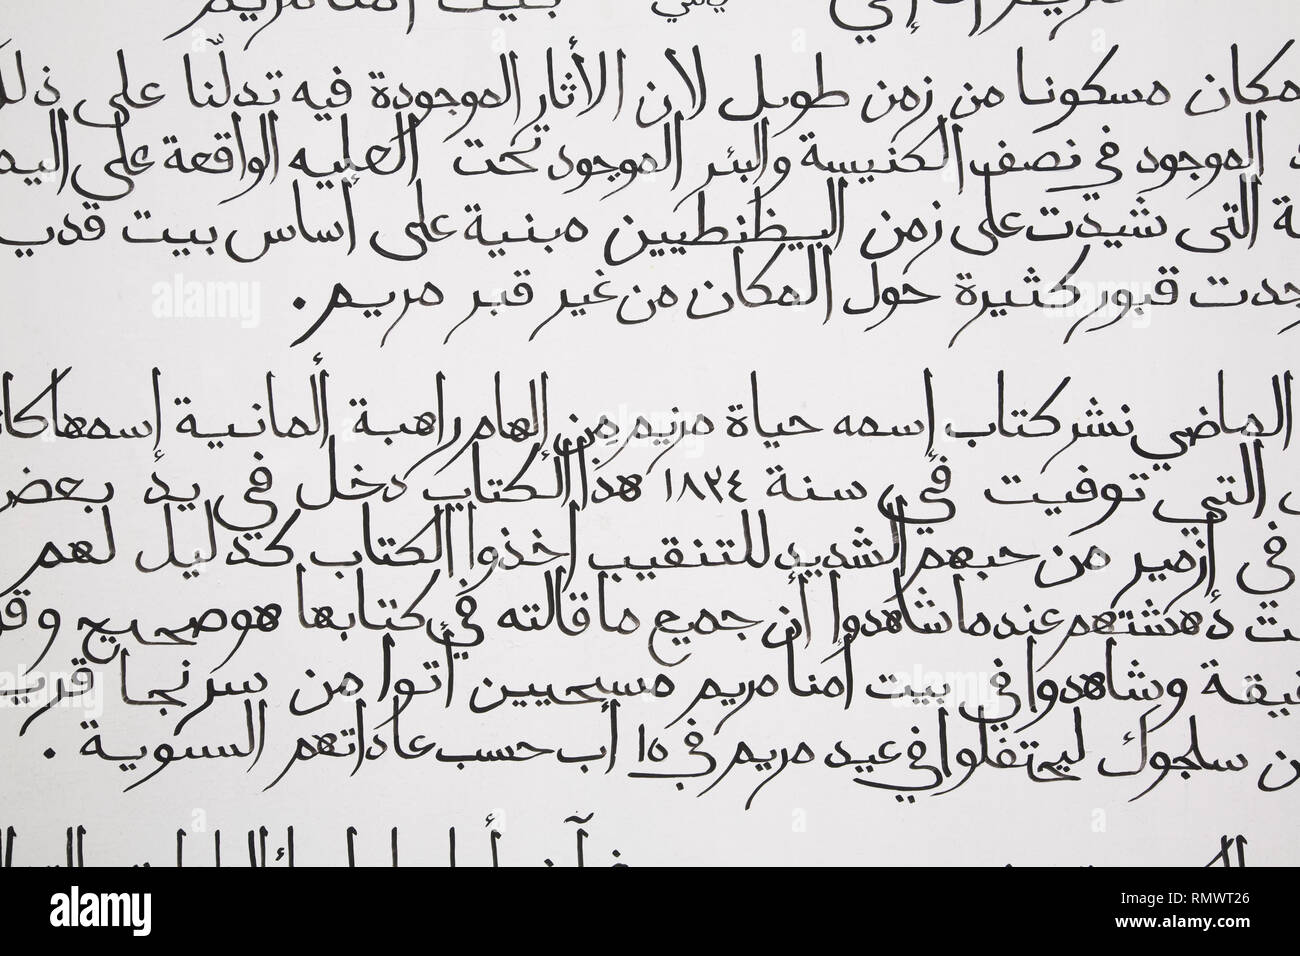 بيت أمنا مريم
مكان مسكونا من زمن طويل لان الأثار الموجودة فيه تدلّنا على ذلك
الموجود في نصف الكنيسة والبئر الموجود تحت العليه الواقعة على
التي شيدت على زمن البيظنطيين مبنية على إساس بيت قديـ
جدت قبور كثيرة حول المكان من غير قبر مريم .
الماضي نشر كتاب إسمه حياة مريم مِن إلهام راهبة ألمانية إسمها كا
التي توفيت في سنة ١٨٢٤ هذا الكتاب دخل في يد بعض
في ازمير من حبهم الشديد للتنقيب اخذوا الكتاب كدليل لهم
دهشتهم عندما شاهدوا أن جميع ما قالته في كتابها هو صحيح وقر
يقة وشاهدوا في بيت امنا مريم مسيحيين أتوا من سرنجا قرب
ن سلجوك ليحتفلوا في عيد مريم في ١٥ أب حسب عاداتهم السنوية .
alamy
alamy stock photo
RMWT26
www.alamy.com